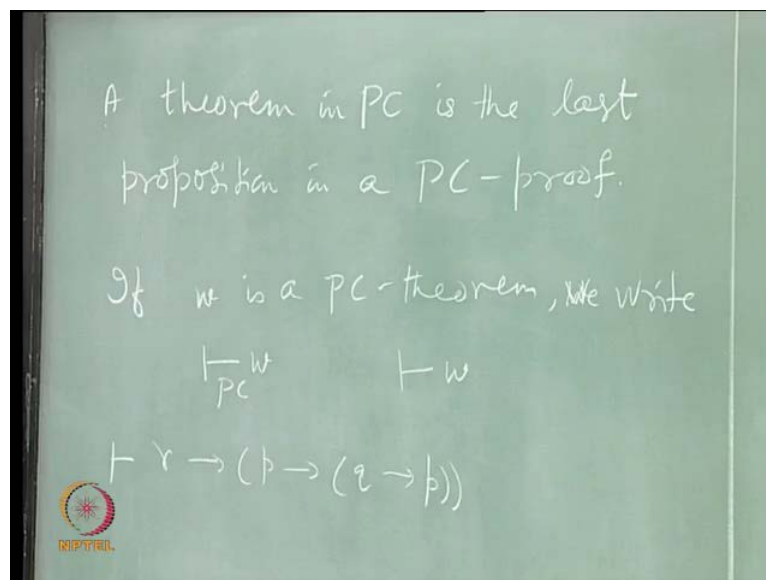 A theorem in PC is the last
proposition in a PC-proof.
If w is a PC-theorem, we write
⊢PC w ⊢ w
⊢ r → (p → (q → p))
NPTEL